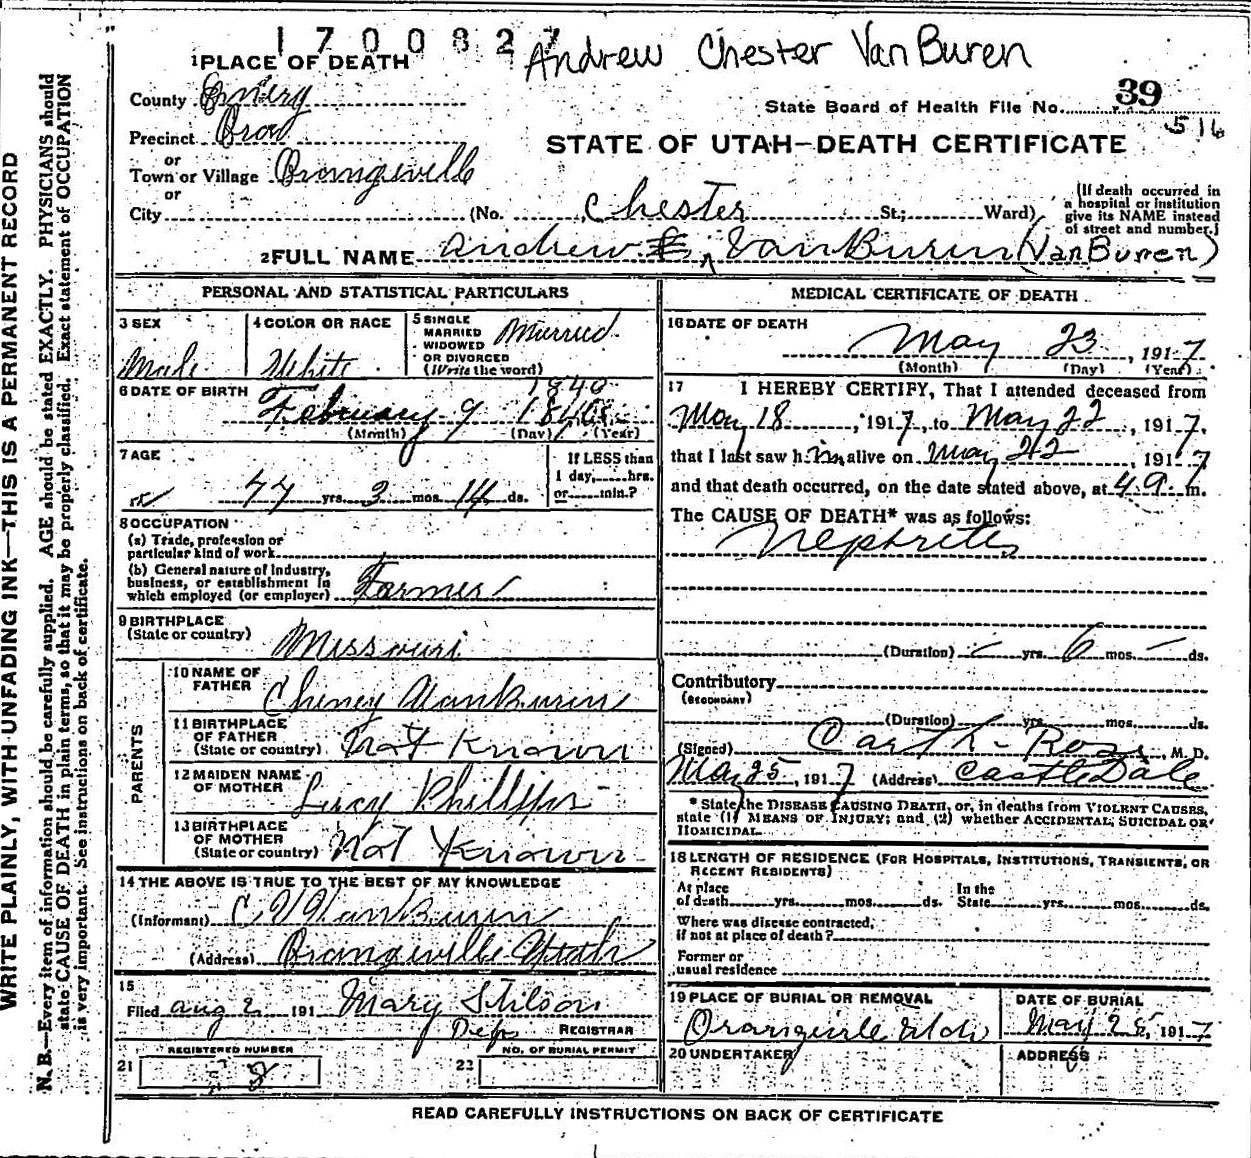 1700827
Andrew Chester VanBuren
1PLACE OF DEATH
County Emery
State Board of Health File No. 39
516
Precinct
or
Town or Village Orangeville
STATE OF UTAH—DEATH CERTIFICATE
or
City (No. St.; Ward)
(If death occurred in
a hospital or institution
give its NAME instead
of street and number.)
Chester
2FULL NAME Andrew VanBuren (VanBuren)
PERSONAL AND STATISTICAL PARTICULARS
3 SEX
Male
4 COLOR OR RACE
White
5 SINGLE
MARRIED
WIDOWED
OR DIVORCED
(Write the word)
Married
6 DATE OF BIRTH
1840
February 9
(Month) (Day) (Year)
7 AGE
77 yrs. 3 mos. 14 ds.
If LESS than
1 day, hrs.
or min.?
8 OCCUPATION
(a) Trade, profession or
particular kind of work
(b) General nature of industry,
business, or establishment in
which employed (or employer) Farmer
9 BIRTHPLACE
(State or country)
Missouri
PARENTS
10 NAME OF
FATHER
Cheney VanBuren
11 BIRTHPLACE
OF FATHER
(State or country) Not Known
12 MAIDEN NAME
OF MOTHER
Lucy Phillips
13 BIRTHPLACE
OF MOTHER
(State or country) Not Known
14 THE ABOVE IS TRUE TO THE BEST OF MY KNOWLEDGE
(Informant) C V VanBuren
(Address) Orangeville Utah
15
Filed Aug 2 191 Mary Stilson
Dep REGISTRAR
REGISTERED NUMBER
21 8
NO. OF BURIAL PERMIT
22
MEDICAL CERTIFICATE OF DEATH
16 DATE OF DEATH
May 23, 1917
(Month) (Day) (Year)
17 I HEREBY CERTIFY, That I attended deceased from
May 18, 1917, to May 22, 1917,
that I last saw him alive on May 22, 1917
and that death occurred, on the date stated above, at 4 9 m.
The CAUSE OF DEATH* was as follows:
Nephritis
(Duration) yrs. 6 mos. ds.
Contributory
(SECONDARY)
(Duration) yrs. mos. ds.
(Signed) M. D.
May 25, 1917 (Address) Castle Dale
* State the DISEASE CAUSING DEATH, or, in deaths from VIOLENT CAUSES,
state (1) MEANS OF INJURY; and (2) whether ACCIDENTAL, SUICIDAL OR
HOMICIDAL.
18 LENGTH OF RESIDENCE (FOR HOSPITALS, INSTITUTIONS, TRANSIENTS, OR
RECENT RESIDENTS)
At place
of death yrs. mos. ds.
In the
State yrs. mos. ds.
Where was disease contracted,
if not at place of death?
Former or
usual residence
19 PLACE OF BURIAL OR REMOVAL
Orangeville Utah
DATE OF BURIAL
May 25, 1917
20 UNDERTAKER
ADDRESS
READ CAREFULLY INSTRUCTIONS ON BACK OF CERTIFICATE
WRITE PLAINLY, WITH UNFADING INK—THIS IS A PERMANENT RECORD
N. B.—Every item of information should be carefully supplied. AGE should be stated EXACTLY. PHYSICIANS should
state CAUSE OF DEATH in plain terms, so that it may be properly classified. Exact statement of OCCUPATION
is very important. See instructions on back of certificate.